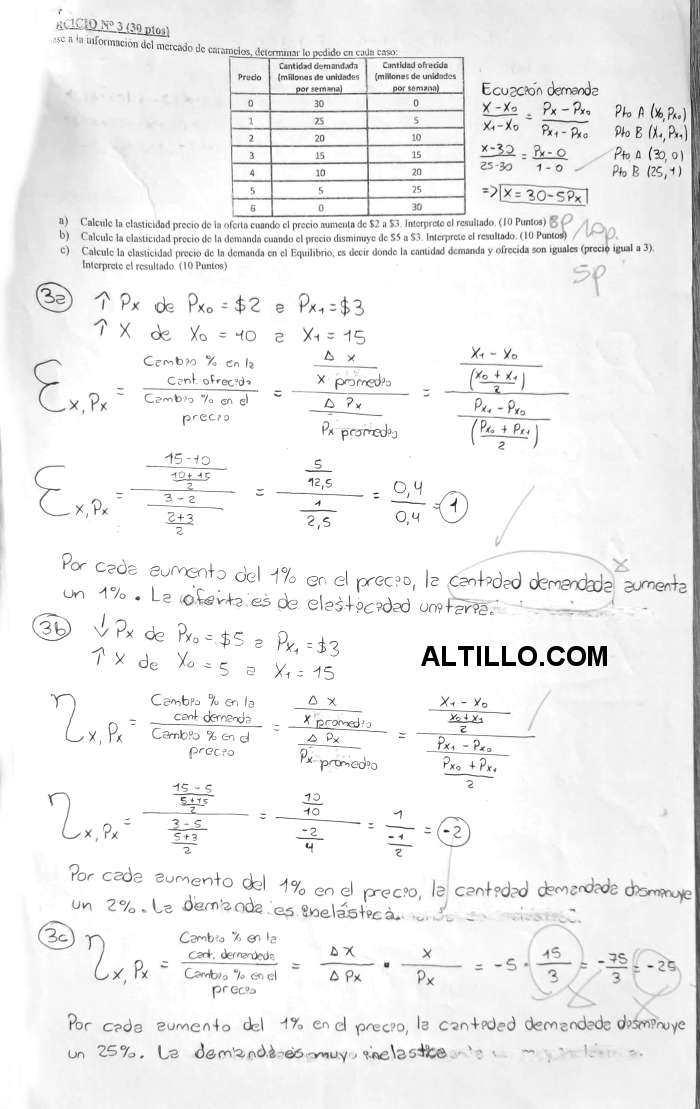 RCICIO Nº 3 (30 ptos)
se a la información del mercado de caramelos, determinar lo pedido en cada caso:
Precio | Cantidad demandada (millones de unidades por semana) | Cantidad ofrecida (millones de unidades por semana)
0 30 0
1 25 5
2 20 10
3 15 15
4 10 20
5 5 25
6 0 30
Ecuación demanda
(X - X₀)/(X₁ - X₀) = (Px - Px₀)/(Px₁ - Px₀)
Pto A (X₀, Px₀)
Pto B (X₁, Px₁)
(X-30)/(25-30) = (Px - 0)/(1 - 0)
Pto A (30, 0)
Pto B (25, 1)
=> X = 30 - 5Px
a) Calcule la elasticidad precio de la oferta cuando el precio aumenta de $2 a $3. Interprete el resultado. (10 Puntos) 8p
b) Calcule la elasticidad precio de la demanda cuando el precio disminuye de $5 a $3. Interprete el resultado. (10 Puntos) 10p.
c) Calcule la elasticidad precio de la demanda en el Equilibrio, es decir donde la cantidad demanda y ofrecida son iguales (precio igual a 3).
Interprete el resultado. (10 Puntos)
5p
3a ↑ Px de Px₀ = $2 a Px₁ = $3
↑ X de X₀ = 10 a X₁ = 15
Ɛx,Px = (Cambio % en la cant. ofrecida)/(Cambio % en el precio) = (Δ x / X promedio)/(Δ Px / Px promedio) = ((X₁ - X₀)/((X₀ + X₁)/2))/((Px₁ - Px₀)/((Px₀ + Px₁)/2))
Ɛx,Px = ((15-10)/((10+15)/2))/((3-2)/((2+3)/2)) = (5/12,5)/(1/2,5) = 0,4/0,4 = 1
Por cada aumento del 1% en el precio, la cantidad demandada aumenta
un 1%. La oferta es de elasticidad unitaria.
3b ↓ Px de Px₀ = $5 a Px₁ = $3
↑ X de X₀ = 5 a X₁ = 15
ALTILLO.COM
ηx,Px = (Cambio % en la cant demanda)/(Cambio % en el precio) = (Δ X / X promedio)/(Δ Px / Px promedio) = ((X₁ - X₀)/((X₀+X₁)/2))/((Px₁ - Px₀)/((Px₀ + Px₁)/2))
ηx,Px = ((15-5)/((5+15)/2))/((3-5)/((5+3)/2)) = (10/10)/(-2/4) = 1/(-1/2) = -2
Por cada aumento del 1% en el precio, la cantidad demandada disminuye
un 2%. La demanda es inelástica.
3c ηx,Px = (Cambio % en la cant. demandada)/(Cambio % en el precio) = ΔX/ΔPx · X/Px = -5 · 15/3 = -75/3 = -25
Por cada aumento del 1% en el precio, la cantidad demandada disminuye
un 25%. La demanda es muy inelastica